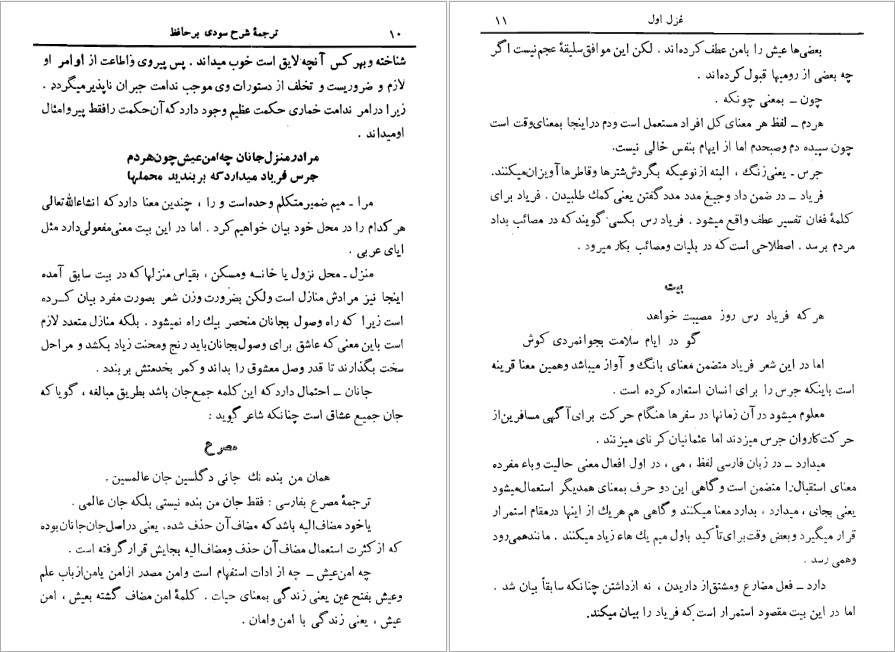 ۱۰ ترجمهٔ شرح سودی بر حافظ
شناخته و بهر کس آنچه لایق است خوب میداند . پس پیروی و اطاعت از اوامر او
لازم و ضروریست و تخلف از دستورات وی موجب ندامت جبران ناپذیر میگردد .
زیرا در امر ندامت خماری حکمت عظیم وجود دارد که آن حکمت را فقط پیر و امثال
او میداند .
مرا در منزل جانان چه امن عیش چون هر دم
جرس فریاد میدارد که بر بندید محملها
مرا ـ میم ضمیر متکلم وحده است و را ، چندین معنا دارد که انشاءالله تعالی
هر کدام را در محل خود بیان خواهیم کرد . اما در این بیت معنی مفعولی دارد مثل
ایای عربی .
منزل ـ محل نزول یا خانه و مسکن ، بقیاس منزلها که در بیت سابق آمده
اینجا نیز مرادش منازل است ولکن بضرورت وزن شعر بصورت مفرد بیان کرده
است زیرا که راه وصول بجانان منحصر بیك راه نمیشود . بلکه منازل متعدد لازم
است باین معنی که عاشق برای وصول بجانان باید رنج و محنت زیاد بکشد و مراحل
سخت بگذارند تا قدر وصل معشوق را بداند و کمر بخدمتش بر بندد .
جانان ـ احتمال دارد که این کلمه جمع جان باشد بطریق مبالغه ، گویا که
جان جمیع عشاق است چنانکه شاعر گوید :
مصرع
همان من بنده نك جانی دگلسین جان عالمسین .
ترجمهٔ مصرع بفارسی : فقط جان من بنده نیستی بلکه جان عالمی .
یا خود مضاف الیه باشد که مضاف آن حذف شده، یعنی در اصل جان جانان بوده
که از کثرت استعمال مضاف آن حذف و مضاف الیه بجایش قرار گرفته است .
چه امن عیش ـ چه از ادات استفهام است و امن مصدر از امن یامن از باب علم
و عیش بفتح عین یعنی زندگی بمعنای حیات . کلمهٔ امن مضاف گشته بعیش ، امن
عیش ، یعنی زندگی با امن و امان .
غزل اول ۱۱
بعضی‌ها عیش را بامن عطف کرده‌اند . لکن این موافق سلیقهٔ عجم نیست اگر
چه بعضی از رومیها قبول کرده‌اند .
چون ـ بمعنی چونکه .
هردم ـ لفظ هر معنای کل افراد مستعمل است و دم در اینجا بمعنای وقت است
چون سپیده دم و صبحدم اما از ایهام بنفس خالی نیست.
جرس ـ یعنی زنگ ، البته از نوعیکه بگردش شترها و قاطرها آویزان میکنند.
فریاد ـ در ضمن داد و جیغ مدد مدد گفتن یعنی کمك طلبیدن . فریاد برای
کلمهٔ فغان تفسیر عطف واقع میشود . فریاد رس بکسی گویند که در مصائب بداد
مردم برسد . اصطلاحی است که در بلیات و مصائب بکار میرود .
بیت
هر که فریاد رس روز مصیبت خواهد
گو در ایام سلامت بجوانمردی کوش
اما در این شعر فریاد متضمن معنای بانگ و آواز میباشد و همین معنا قرینه
است باینکه جرس را برای انسان استعاره کرده است .
معلوم میشود در آن زمانها در سفرها هنگام حرکت برای آگهی مسافرین از
حرکت کاروان جرس میزدند اما عثمانیان کر نای میزنند .
میدارد ـ در زبان فارسی لفظ ، می ، در اول افعال معنی حالیت و باء مفرده
معنای استقبال را متضمن است و گاهی این دو حرف بمعنای همدیگر استعمال میشود
یعنی بجای ، میدارد ، بدارد معنا میکنند و گاهی هم هر یك از اینها در مقام استمرار
قرار میگیرد و بعض وقت برای تأکید باول میم یك هاء زیاد میکنند . مانند همی رود
و همی رسد .
دارد ـ فعل مضارع و مشتق از داریدن ، نه از داشتن چنانکه سابقاً بیان شد .
اما در این بیت مقصود استمرار است که فریاد را بیان میکند.